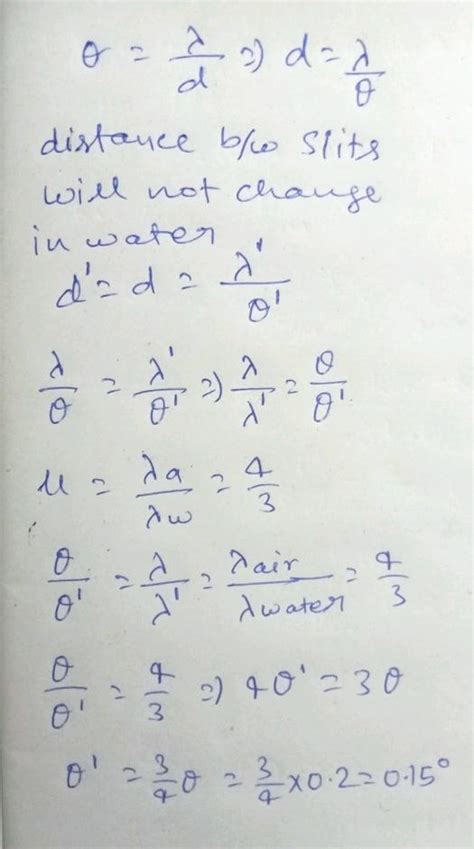 θ = λ/d => d = λ/θ
distance b/w slits
will not change
in water
d' = d = λ'/θ'
λ/θ = λ'/θ' => λ/λ' = θ/θ'
μ = λa/λw = 4/3
θ/θ' = λ/λ' = λair/λwater = 4/3
θ/θ' = 4/3 => 4θ' = 3θ
θ' = 3/4 θ = 3/4 × 0.2 = 0.15°